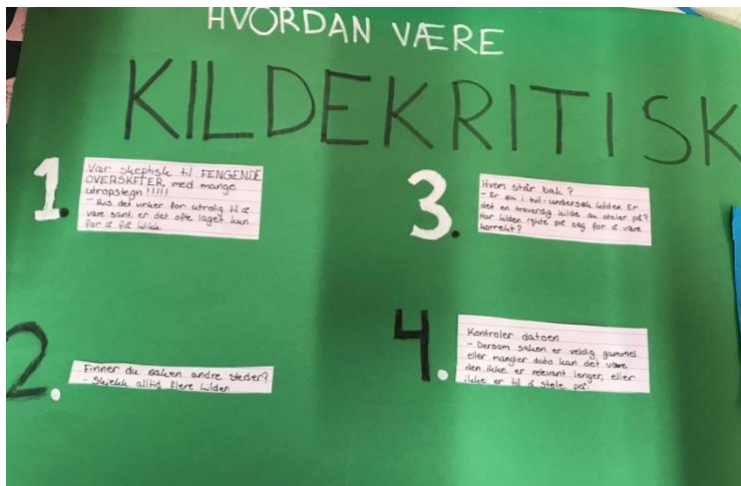 HVORDAN VÆRE
KILDEKRITISK
1.
Vær skeptisk til FENGENDE
OVERSKFTER, med mange
utropstegn !!!!!
- Hvis det virker for utrolig til å
være sant er det ofte laget kun
for å få klikk
2.
Finner du saken andre steder?
- Skjekk alltid flere kilder
3.
Hvem står bak?
- Er du i tvil - undersøk kilden. Er
det en troverdig kilde du stoler på?
Har kilden rykte på seg for å være
korrekt?
4.
Kontroler datoen
- Dersom saken er veldig gammel
eller mangler dato kan det være
den ikke er relevant lenger, eller
ikke er til å stole på